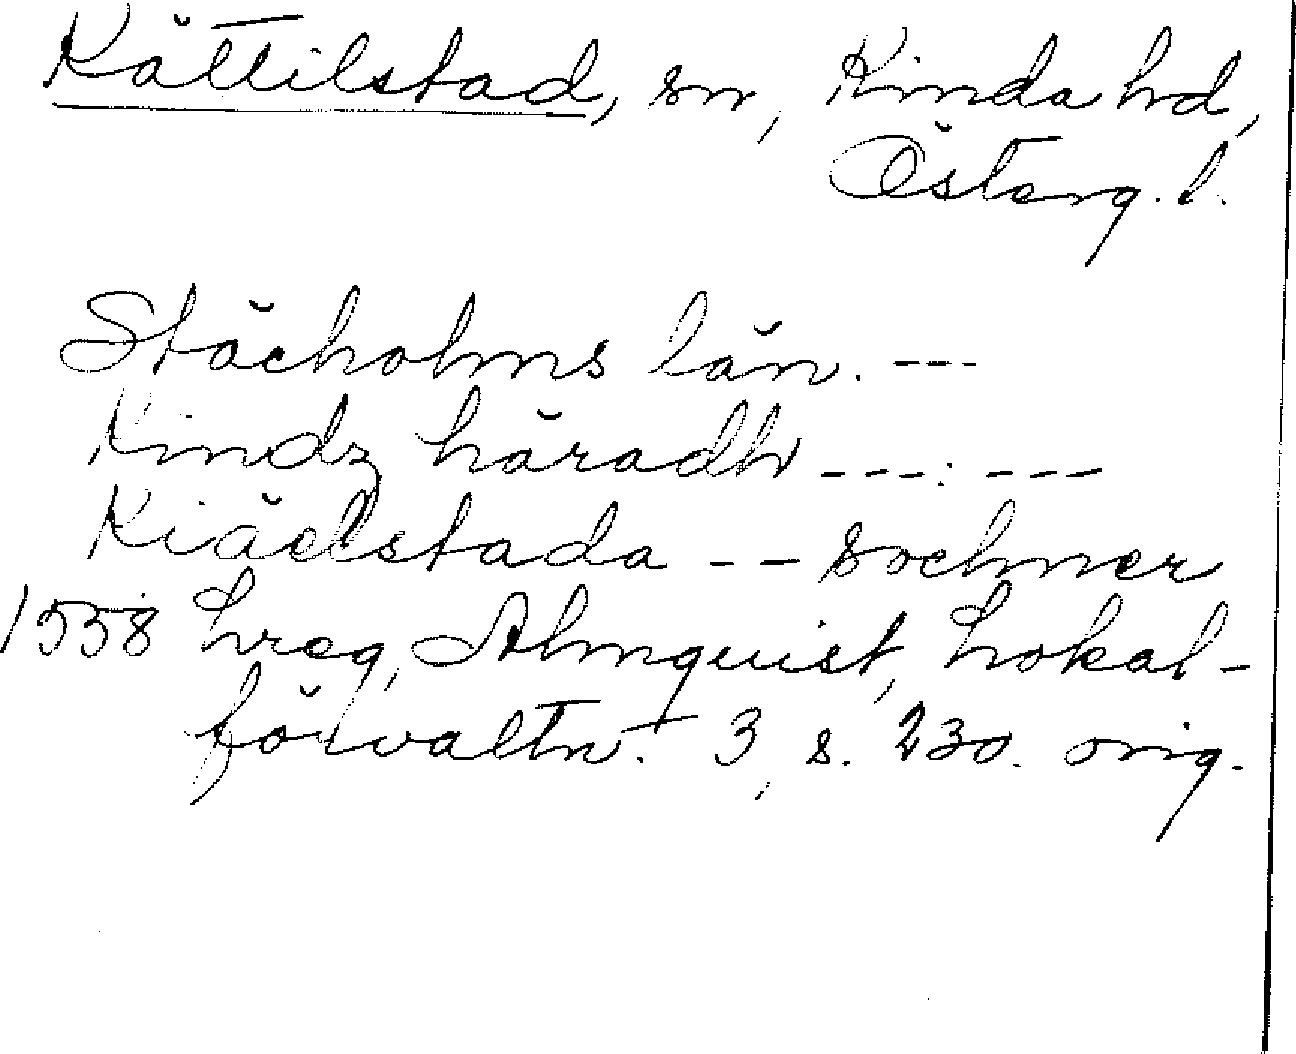 Kättilstad, sn, Kinda hd,
Österg. l.
Stächolms län. ---
Kindz häradh ---:---
Kiälstada -- sochner
1558 Lreg, Almquist, Lokal-
förvaltn. 3, s. 230. orig.